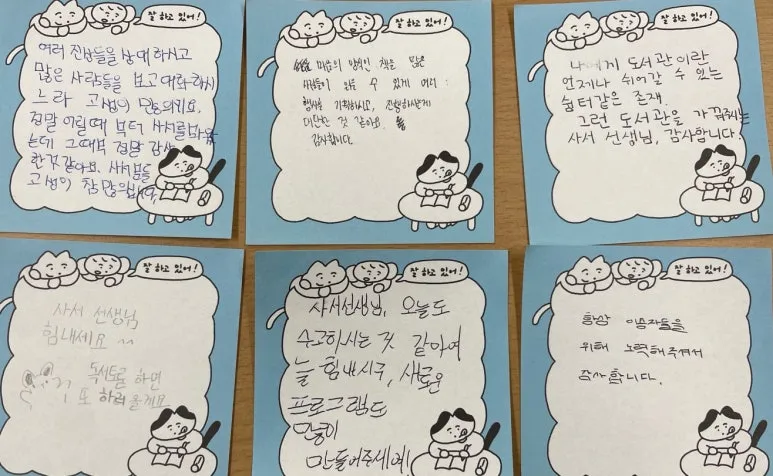 잘 하고 있어!
여러 진상들을 상대하시고
많은 사람들을 보고 대화하시
느라 고생이 많으시네요.
정말 어릴때 부터 사서를봐왔
는데 그때부터 정말 감사
한것 같아요. 사서쌤들
고생이 참 많으십니다
잘 하고 있어!
마음의 양식인 책을 많은
사람들이 읽을 수 있게 여러
행사를 기획하시고, 진행하시는게
대단한 것 같아요.
감사합니다.
잘 하고 있어!
나에게 도서관이란
언제나 쉬어갈 수 있는
쉼터같은 존재.
그런 도서관을 가꿔주시는
사서 선생님, 감사합니다!
잘 하고 있어!
사서 선생님
힘내세요 ^^
독서토론 하면
또 하러 올게요
잘 하고 있어!
사서선생님, 오늘도
수고하시는 것 같아여
늘 힘내시구, 새로운
프로그램도
많이
만들어주세여!
잘 하고 있어!
항상 이용자들을
위해 노력해주셔서
감사합니다.